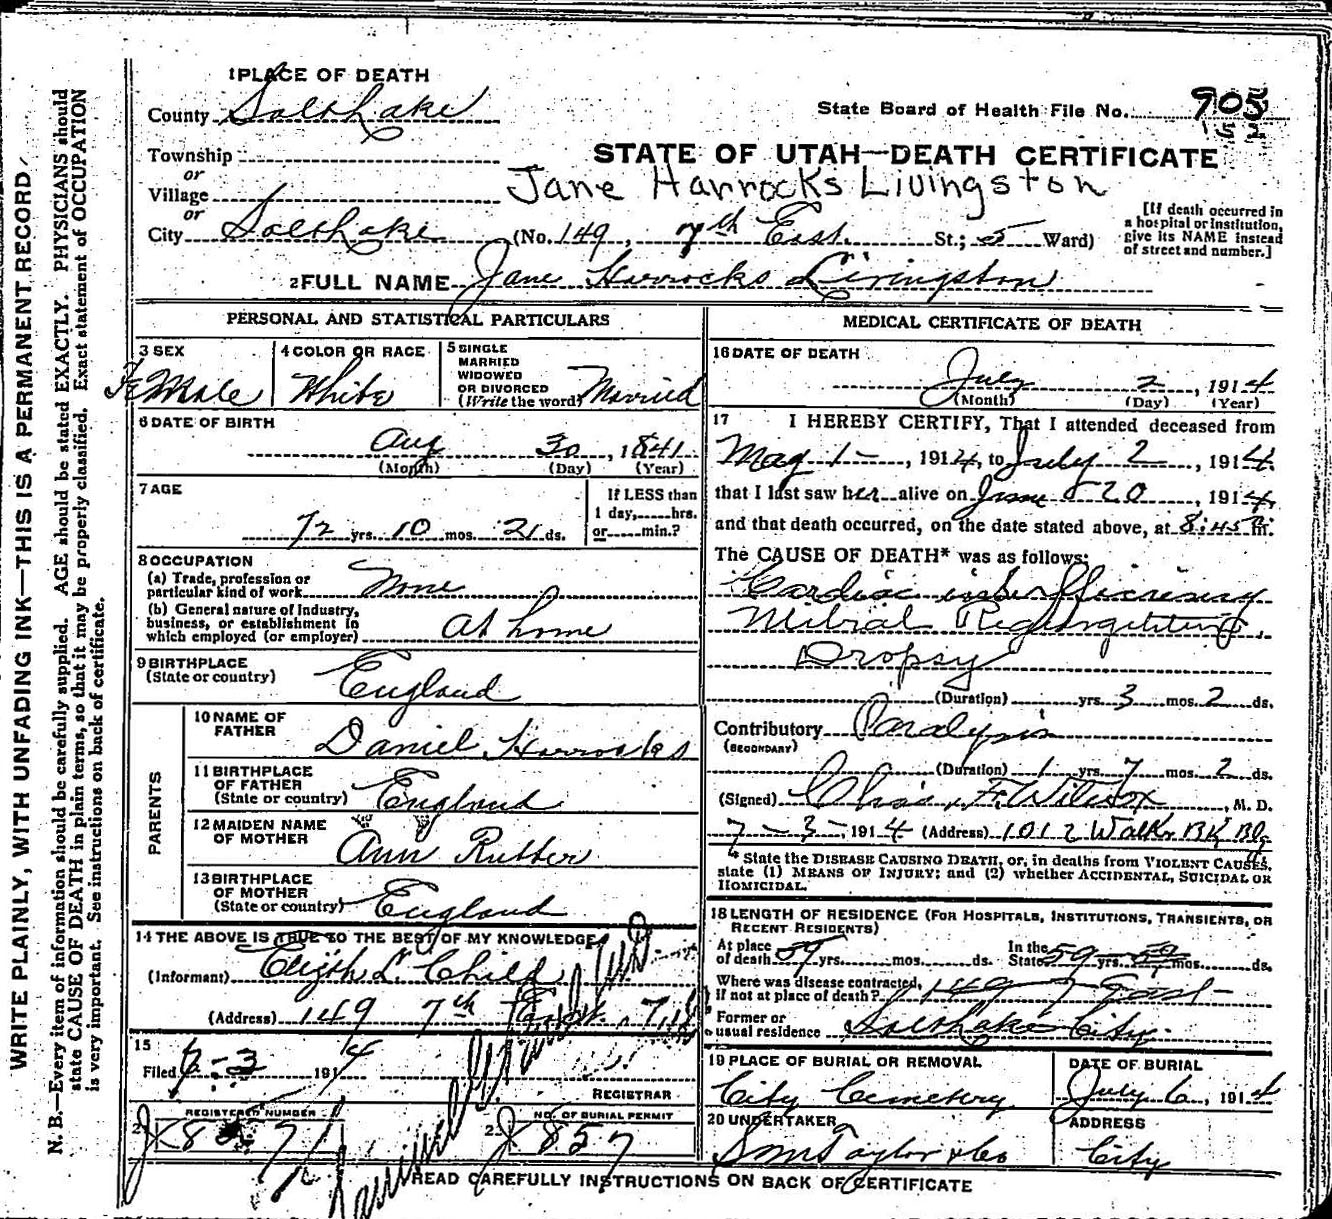 1 PLACE OF DEATH
County Salt Lake
State Board of Health File No. 905
152
Township
or
Village
or
STATE OF UTAH—DEATH CERTIFICATE
Jane Harrocks Livingston
City Salt Lake (No. 149, 7th East. St.; 5 Ward)
[If death occurred in
a hospital or institution,
give its NAME instead
of street and number.]
2 FULL NAME Jane Harrocks Livingston
PERSONAL AND STATISTICAL PARTICULARS
3 SEX
Female
4 COLOR OR RACE
White
5 SINGLE
MARRIED
WIDOWED
OR DIVORCED
(Write the word) Married
6 DATE OF BIRTH
Aug 30, 1841
(Month) (Day) (Year)
7 AGE
72 yrs. 10 mos. 21 ds.
If LESS than
1 day, hrs.
or min.?
8 OCCUPATION
(a) Trade, profession or
particular kind of work None
(b) General nature of Industry,
business, or establishment in
which employed (or employer) At home
9 BIRTHPLACE
(State or country) England
PARENTS
10 NAME OF
FATHER Daniel Harrocks
11 BIRTHPLACE
OF FATHER
(State or country) England
12 MAIDEN NAME
OF MOTHER Ann Rutter
13 BIRTHPLACE
OF MOTHER
(State or country) England
14 THE ABOVE IS TRUE TO THE BEST OF MY KNOWLEDGE
(Informant) L. Child
(Address) 149 7th East.
15
Filed 7-3 1914
REGISTRAR
REGISTERED NUMBER
NO. OF BURIAL PERMIT
857
MEDICAL CERTIFICATE OF DEATH
16 DATE OF DEATH
July 2, 1914
(Month) (Day) (Year)
17 I HEREBY CERTIFY, That I attended deceased from
May 1-, 1914, to July 2, 1914.
that I last saw her alive on June 20, 1914,
and that death occurred, on the date stated above, at 8:45 m.
The CAUSE OF DEATH* was as follows:
Cardiac insufficiency
Mitral Regurgitation,
Dropsy
(Duration) yrs. 3 mos. 2 ds.
Contributory Paralysis
(SECONDARY)
(Duration) 1 yrs. 7 mos. 2 ds.
(Signed) Chas. F. Wilcox, M. D.
7-3-1914 (Address) 1012 Walker Bk Blg
* State the DISEASE CAUSING DEATH, or, in deaths from VIOLENT CAUSES,
state (1) MEANS OF INJURY; and (2) whether ACCIDENTAL, SUICIDAL OR
HOMICIDAL.
18 LENGTH OF RESIDENCE (FOR HOSPITALS, INSTITUTIONS, TRANSIENTS, OR
RECENT RESIDENTS)
At place
of death 59 yrs. mos. ds.
In the
State 59 yrs. mos. ds.
Where was disease contracted,
if not at place of death? 149 7 East
Former or
usual residence Salt Lake City.
19 PLACE OF BURIAL OR REMOVAL
City Cemetery
DATE OF BURIAL
July 6, 1914
20 UNDERTAKER
S M Taylor & Co
ADDRESS
City
READ CAREFULLY INSTRUCTIONS ON BACK OF CERTIFICATE
WRITE PLAINLY, WITH UNFADING INK—THIS IS A PERMANENT RECORD.
N. B.—Every item of information should be carefully supplied. AGE should be stated EXACTLY. PHYSICIANS should
state CAUSE OF DEATH in plain terms, so that it may be properly classified. Exact statement of OCCUPATION
is very important. See instructions on back of certificate.